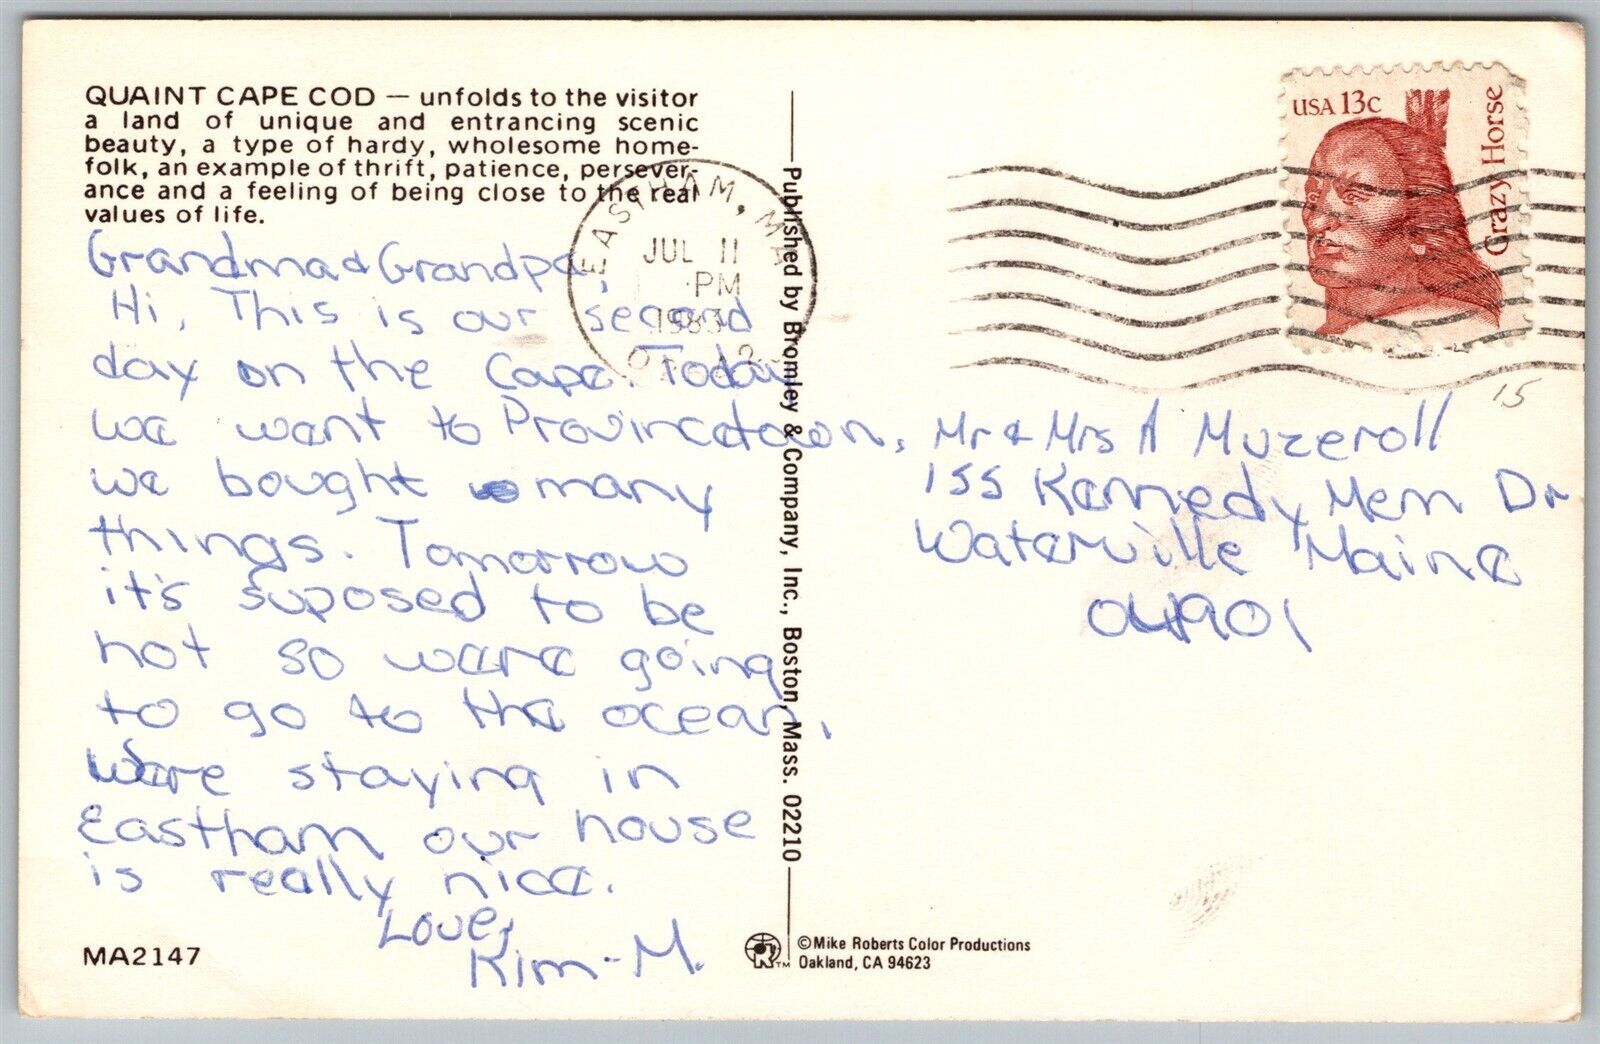 QUAINT CAPE COD — unfolds to the visitor
a land of unique and entrancing scenic
beauty, a type of hardy, wholesome home-
folk, an example of thrift, patience, persever-
ance and a feeling of being close to the real
values of life.
Grandma & Grandpa,
Hi, This is our second
day on the Cape. Today
we went to Provincetown,
we bought many
things. Tomorrow
it's suposed to be
hot so were going
to go to the ocean.
Were staying in
Eastham our house
is really nice.
Love,
Kim-M.
MA2147
EASTHAM, MA
JUL 11
PM
1983
Published by Bromley & Company, Inc., Boston, Mass. 02210
©Mike Roberts Color Productions
Oakland, CA 94623
TM
USA 13c
Crazy Horse
15
Mr & Mrs A Muzeroll
155 Kennedy Mem Dr
Waterville, Maine
04901